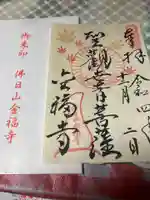 奉拝
令和四年
十一月二日
聖観世音菩薩
金福寺
御朱印
佛日山金福寺